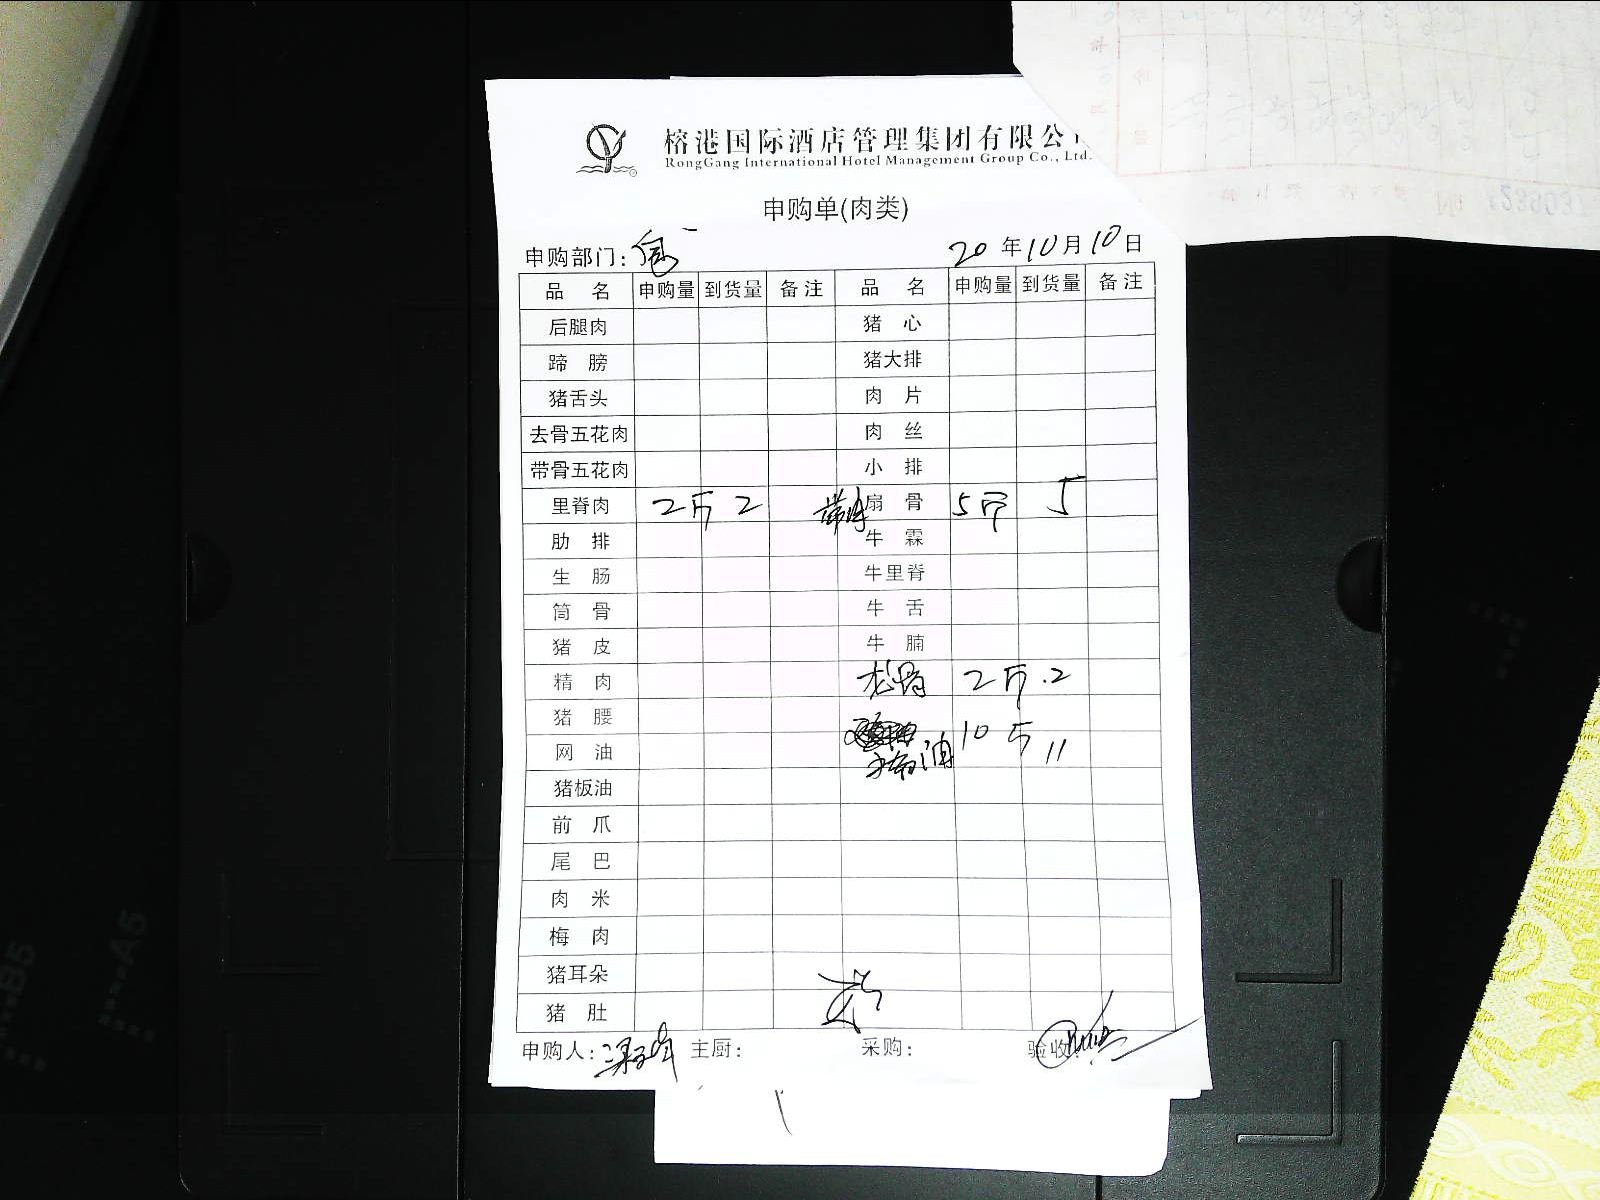 榕港国际酒店管理集团有限公
RongGang International Hotel Management Group Co., Ltd.
申购单(肉类)
申购部门: 20 年 10 月 10 日
品 名 申购量 到货量 备注 品 名 申购量 到货量 备注
后腿肉 猪 心
蹄 膀 猪大排
猪舌头 肉 片
去骨五花肉 肉 丝
带骨五花肉 小 排
里脊肉 2斤 2 扇 骨 5斤 5
肋 排 牛 霖
生 肠 牛里脊
筒 骨 牛 舌
猪 皮 牛 腩
精 肉 龙骨 2斤 2
猪 腰 10斤 11
网 油 油
猪板油
前 爪
尾 巴
肉 米
梅 肉
猪耳朵
猪 肚
申购人: 主厨: 采购: 验收